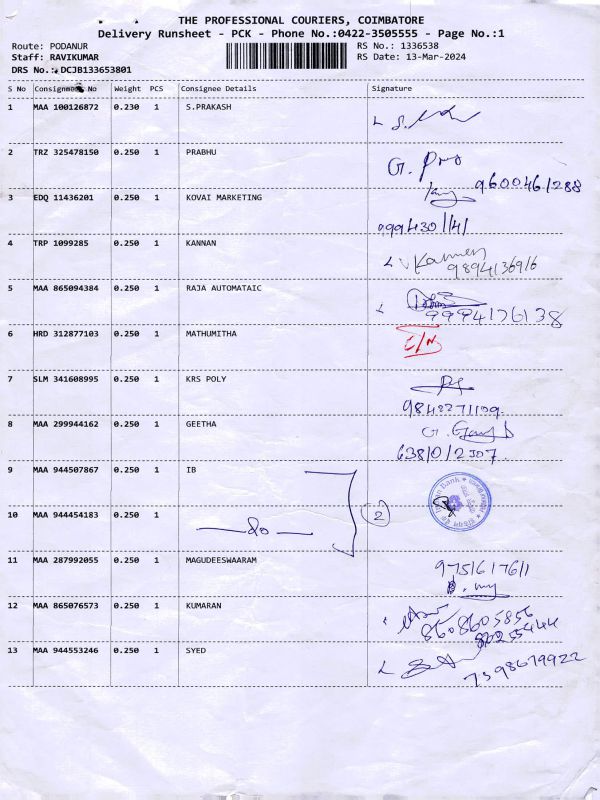 THE PROFESSIONAL COURIERS, COIMBATORE
Delivery Runsheet - PCK - Phone No.:0422-3505555 - Page No.:1
Route: PODANUR RS No.: 1336538
Staff: RAVIKUMAR RS Date: 13-Mar-2024
DRS No.: DCJB133653801
S No Consignment No Weight PCS Consignee Details Signature
1 MAA 100126872 0.230 1 S.PRAKASH
2 TRZ 325478150 0.250 1 PRABHU G. Pro
9600461288
3 EDQ 11436201 0.250 1 KOVAI MARKETING
9994301141
4 TRP 1099285 0.250 1 KANNAN Kannan
9894136916
5 MAA 865094384 0.250 1 RAJA AUTOMATAIC
9994176138
6 HRD 312877103 0.250 1 MATHUMITHA C/N
7 SLM 341608995 0.250 1 KRS POLY
9842271109
8 MAA 299944162 0.250 1 GEETHA
6381012307
9 MAA 944507867 0.250 1 IB
10 MAA 944454183 0.250 1 —do— 2
Indian Bank
11 MAA 287992055 0.250 1 MAGUDEESWAARAM 9751617611
12 MAA 865076573 0.250 1 KUMARAN
8608605856
13 MAA 944553246 0.250 1 SYED
7598679922